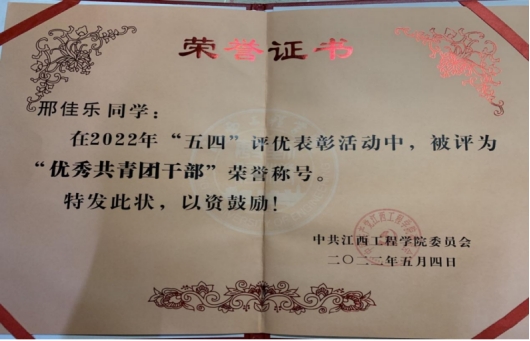 荣誉证书
邢佳乐同学：
在2022年“五四”评优表彰活动中，被评为
“优秀共青团干部”荣誉称号。
特发此状，以资鼓励！
中共江西工程学院委员会
二〇二二年五月四日